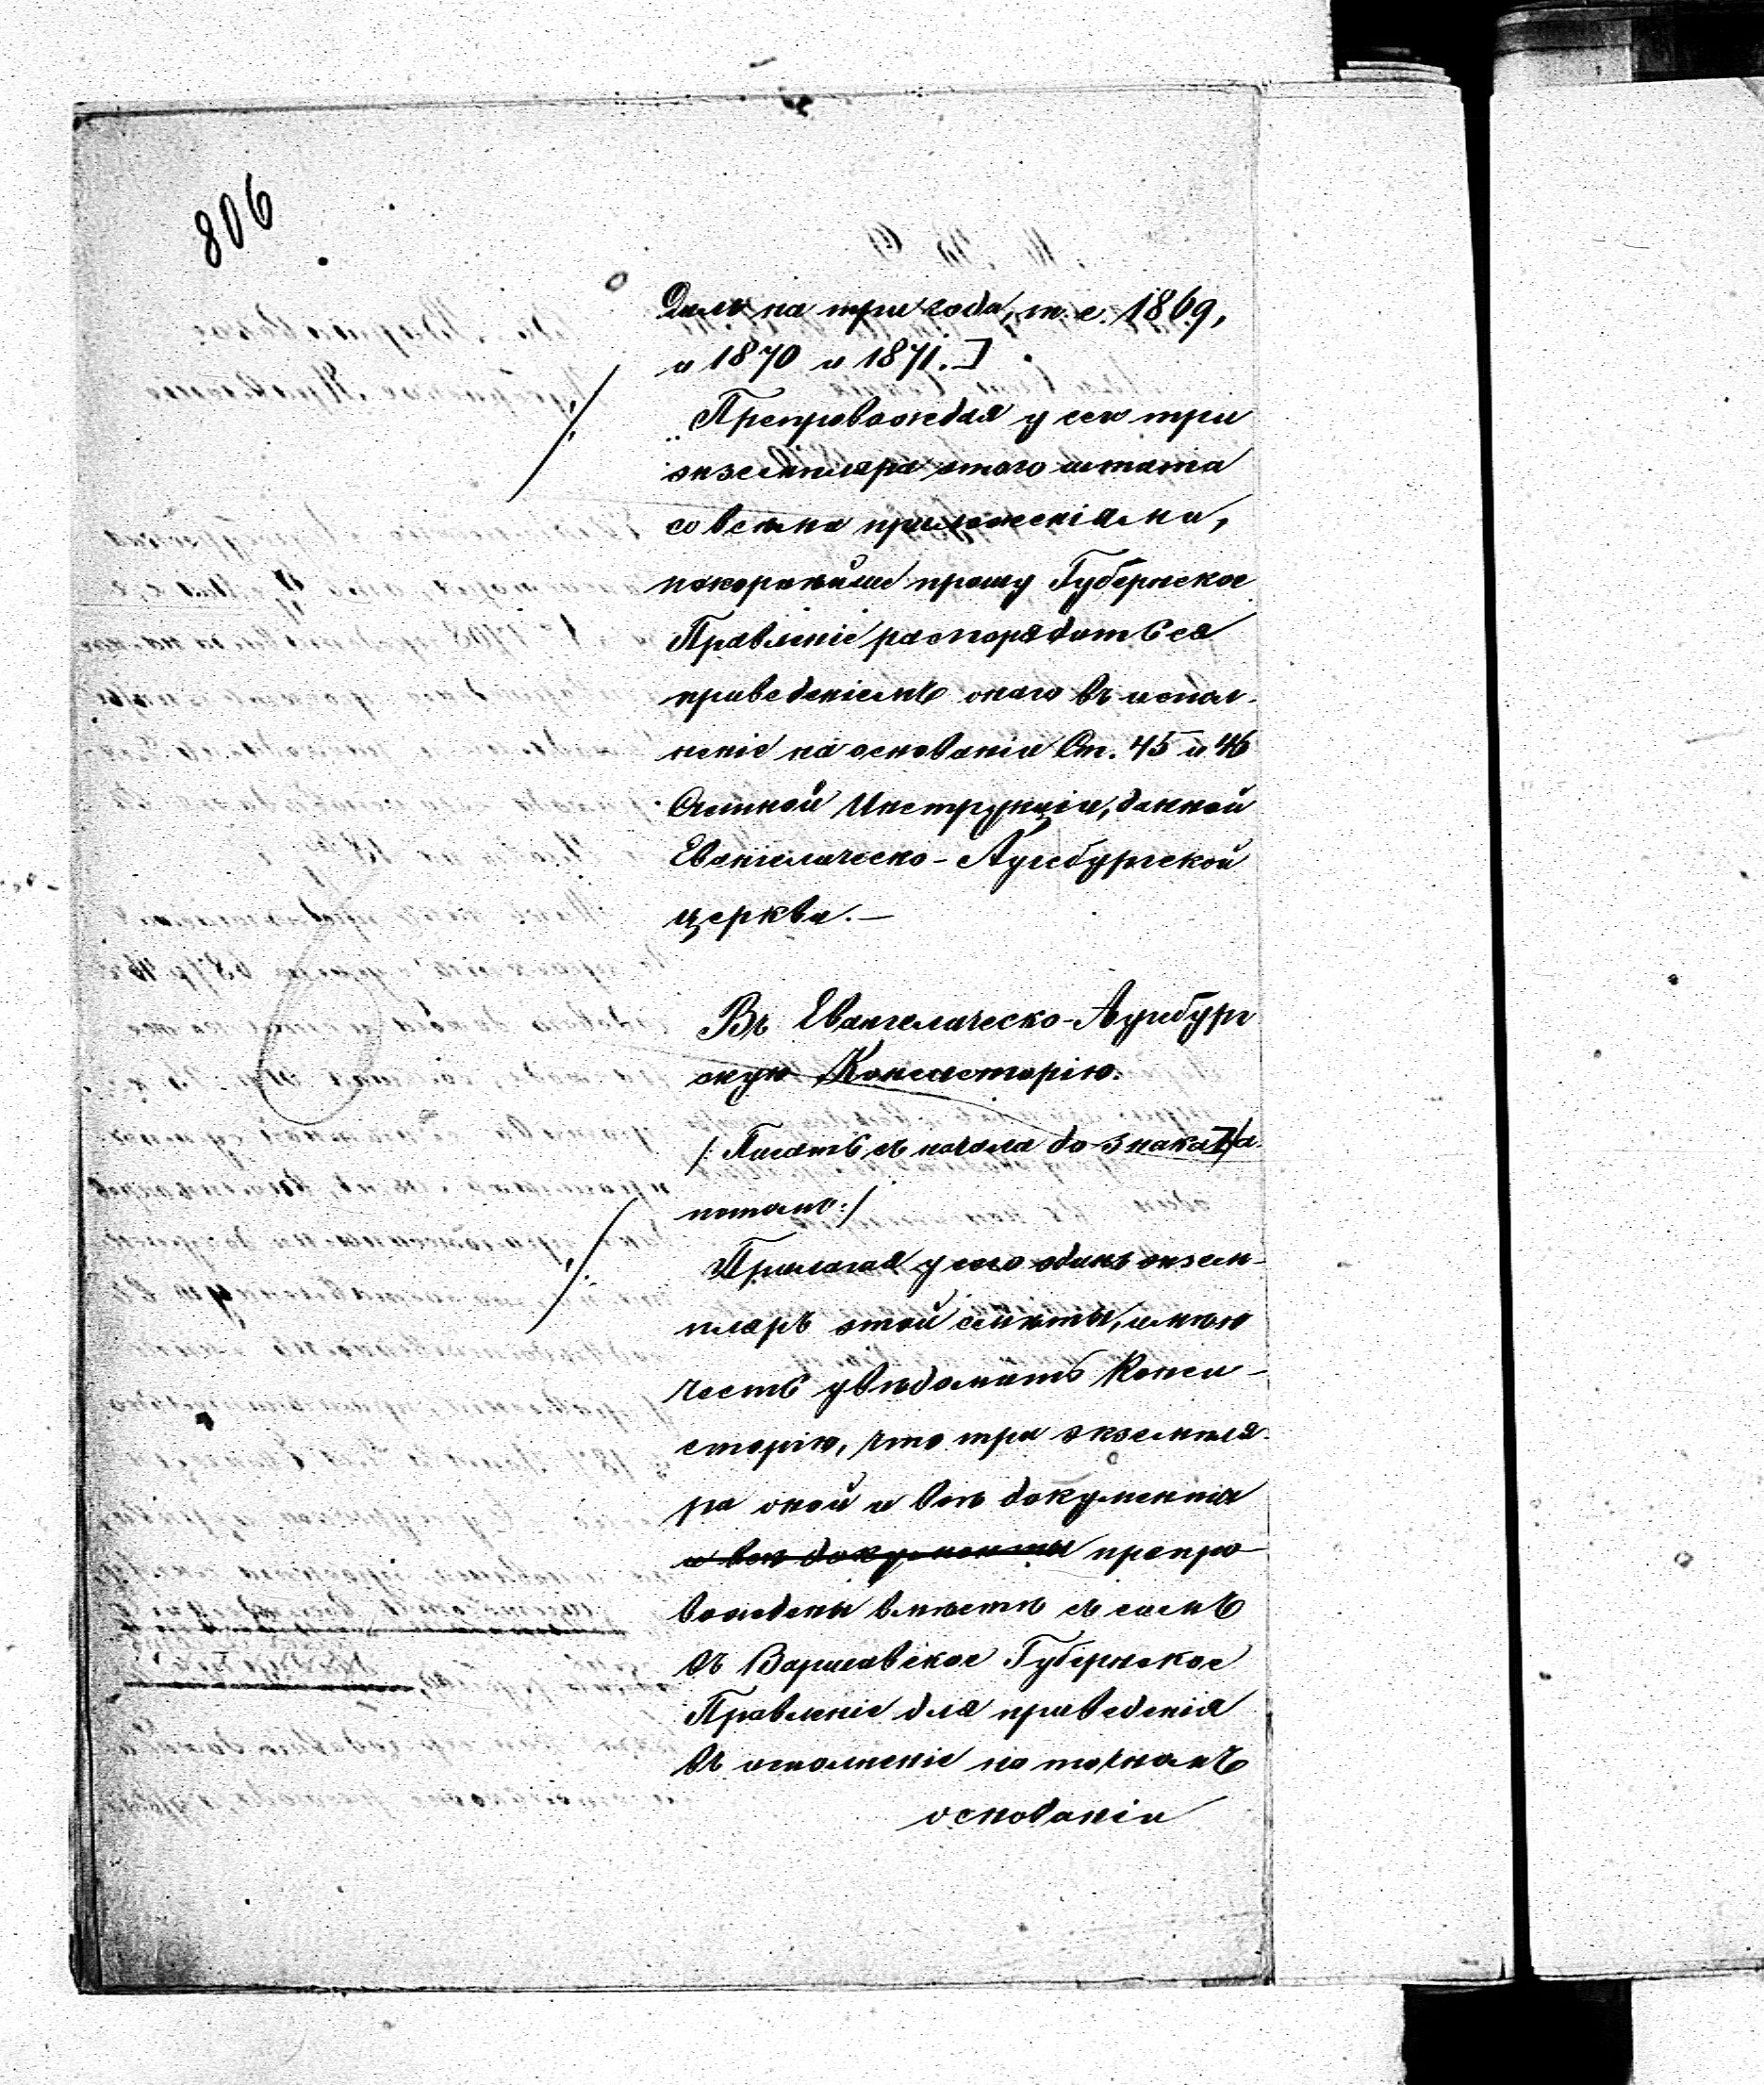 806
Дамъ на три года, т. е. 1869,
и 1870 и 1871.]
Препровождая у сего три
экземпляра этого штата
со всѣми приложеніями,
покорнѣйше прошу Губернское
Правленіе распорядиться
приведеніемъ онаго въ испол-
неніе на основаніи Ст. 45 и 46
Смѣтной Инструкціи, данной
Евангелическо-Аугсбургской
церкви.—
Въ Евангелическо-Аугсбург
скую Консисторію.
/: Писать съ начала до знака ] а
потомъ :/
Прилагая у сего одинъ экзем-
пляръ этой смѣты, имѣю
честь увѣдомить Конси-
сторію, что три экземпля-
ра оной и всѣ документы
и всѣ документы препро-
вождены вмѣстѣ съ симъ
въ Варшавское Губернское
Правленіе для приведенія
въ исполненіе на точномъ
основаніи